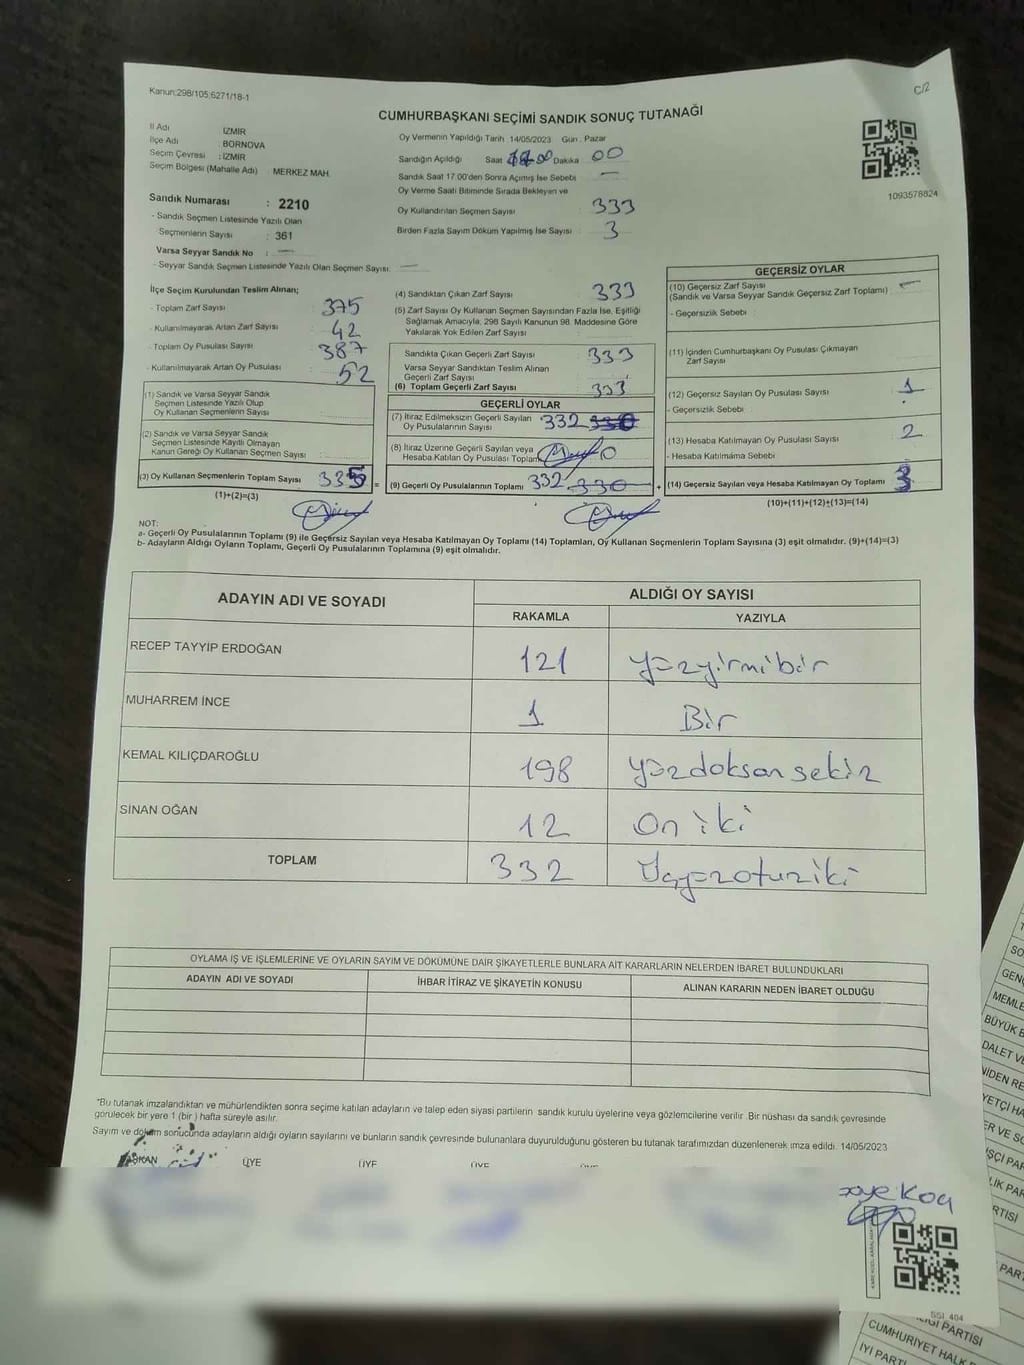 Kanun;298/105;6271/18-1
C/2
CUMHURBAŞKANI SEÇİMİ SANDIK SONUÇ TUTANAĞI
İl Adı : İZMİR
İlçe Adı : BORNOVA
Seçim Çevresi : İZMİR
Seçim Bölgesi (Mahalle Adı) : MERKEZ MAH.
Oy Vermenin Yapıldığı Tarih 14/05/2023 Gün : Pazar
Sandığın Açıldığı Saat Dakika 00
Sandık Saat 17.00'den Sonra Açımış İse Sebebi —
Oy Verme Saati Bitiminde Sırada Bekleyen ve
Oy Kullandırılan Seçmen Sayısı : 333
Birden Fazla Sayım Döküm Yapılmış İse Sayısı : 3
1093578824
Sandık Numarası : 2210
- Sandık Seçmen Listesinde Yazılı Olan
Seçmenlerin Sayısı : 361
Varsa Seyyar Sandık No : —
- Seyyar Sandık Seçmen Listesinde Yazılı Olan Seçmen Sayısı: —
İlçe Seçim Kurulundan Teslim Alınan;
- Toplam Zarf Sayısı : 375
- Kullanılmayarak Artan Zarf Sayısı : 42
- Toplam Oy Pusulası Sayısı : 387
- Kullanılmayarak Artan Oy Pusulası : 52
(1) Sandık ve Varsa Seyyar Sandık
Seçmen Listesinde Yazılı Olup
Oy Kullanan Seçmenlerin Sayısı :
(2) Sandık ve Varsa Seyyar Sandık
Seçmen Listesinde Kayıtlı Olmayan
Kanun Gereği Oy Kullanan Seçmen Sayısı :
(3) Oy Kullanan Seçmenlerin Toplam Sayısı 335 =
(1)+(2)=(3)
(4) Sandıktan Çıkan Zarf Sayısı : 333
(5) Zarf Sayısı Oy Kullanan Seçmen Sayısından Fazla İse, Eşitliği
Sağlamak Amacıyla; 298 Sayılı Kanunun 98. Maddesine Göre
Yakılarak Yok Edilen Zarf Sayısı :
Sandıkta Çıkan Geçerli Zarf Sayısı : 333
Varsa Seyyar Sandıktan Teslim Alınan
Geçerli Zarf Sayısı :
(6) Toplam Geçerli Zarf Sayısı : 333
GEÇERLİ OYLAR
(7) İtiraz Edilmeksizin Geçerli Sayılan
Oy Pusulalarının Sayısı : 332 330
(8) İtiraz Üzerine Geçerli Sayılan veya
Hesaba Katılan Oy Pusulası Toplamı 0
(9) Geçerli Oy Pusulalarının Toplamı 332 330 +
GEÇERSİZ OYLAR
(10) Geçersiz Zarf Sayısı
(Sandık ve Varsa Seyyar Sandık Geçersiz Zarf Toplamı) : —
- Geçersizlik Sebebi :
(11) İçinden Cumhurbaşkanı Oy Pusulası Çıkmayan
Zarf Sayısı
(12) Geçersiz Sayılan Oy Pusulası Sayısı : 1
- Geçersizlik Sebebi :
(13) Hesaba Katılmayan Oy Pusulası Sayısı : 2
- Hesaba Katılmama Sebebi :
(14) Geçersiz Sayılan veya Hesaba Katılmayan Oy Toplamı 3
(10)+(11)+(12)+(13)=(14)
NOT:
a- Geçerli Oy Pusulalarının Toplamı (9) ile Geçersiz Sayılan veya Hesaba Katılmayan Oy Toplamı (14) Toplamları, Oy Kullanan Seçmenlerin Toplam Sayısına (3) eşit olmalıdır. (9)+(14)=(3)
b- Adayların Aldığı Oyların Toplamı, Geçerli Oy Pusulalarının Toplamına (9) eşit olmalıdır.
ADAYIN ADI VE SOYADI ALDIĞI OY SAYISI
RAKAMLA YAZIYLA
RECEP TAYYİP ERDOĞAN 121 yüzyirmibir
MUHARREM İNCE 1 Bir
KEMAL KILIÇDAROĞLU 198 yüzdoksan sekiz
SİNAN OĞAN 12 on iki
TOPLAM 332 Üçyüzotuziki
OYLAMA İŞ VE İŞLEMLERİNE VE OYLARIN SAYIM VE DÖKÜMÜNE DAİR ŞİKAYETLERLE BUNLARA AİT KARARLARIN NELERDEN İBARET BULUNDUKLARI
ADAYIN ADI VE SOYADI İHBAR İTİRAZ VE ŞİKAYETİN KONUSU ALINAN KARARIN NEDEN İBARET OLDUĞU
*Bu tutanak imzalandıktan ve mühürlendikten sonra seçime katılan adayların ve talep eden siyasi partilerin sandık kurulu üyelerine veya gözlemcilerine verilir. Bir nüshası da sandık çevresinde
görülecek bir yere 1 (bir ) hafta süreyle asılır.
Sayım ve döküm sonucunda adayların aldığı oyların sayılarını ve bunların sandık çevresinde bulunanlara duyurulduğunu gösteren bu tutanak tarafımızdan düzenlenerek imza edildi. 14/05/2023
BAŞKAN ÜYE ÜYE ÜYE
SSI_404
SO
GENÇ
MEMLE
BÜYÜK B
DALET VE
NİDEN RE
YETÇİ HA
ER VE SO
İŞÇİ PAR
LİK PAR
RTİSİ
PAR
İĞİ PARTİSİ
CUMHURİYET HALK
İYİ PARTİ